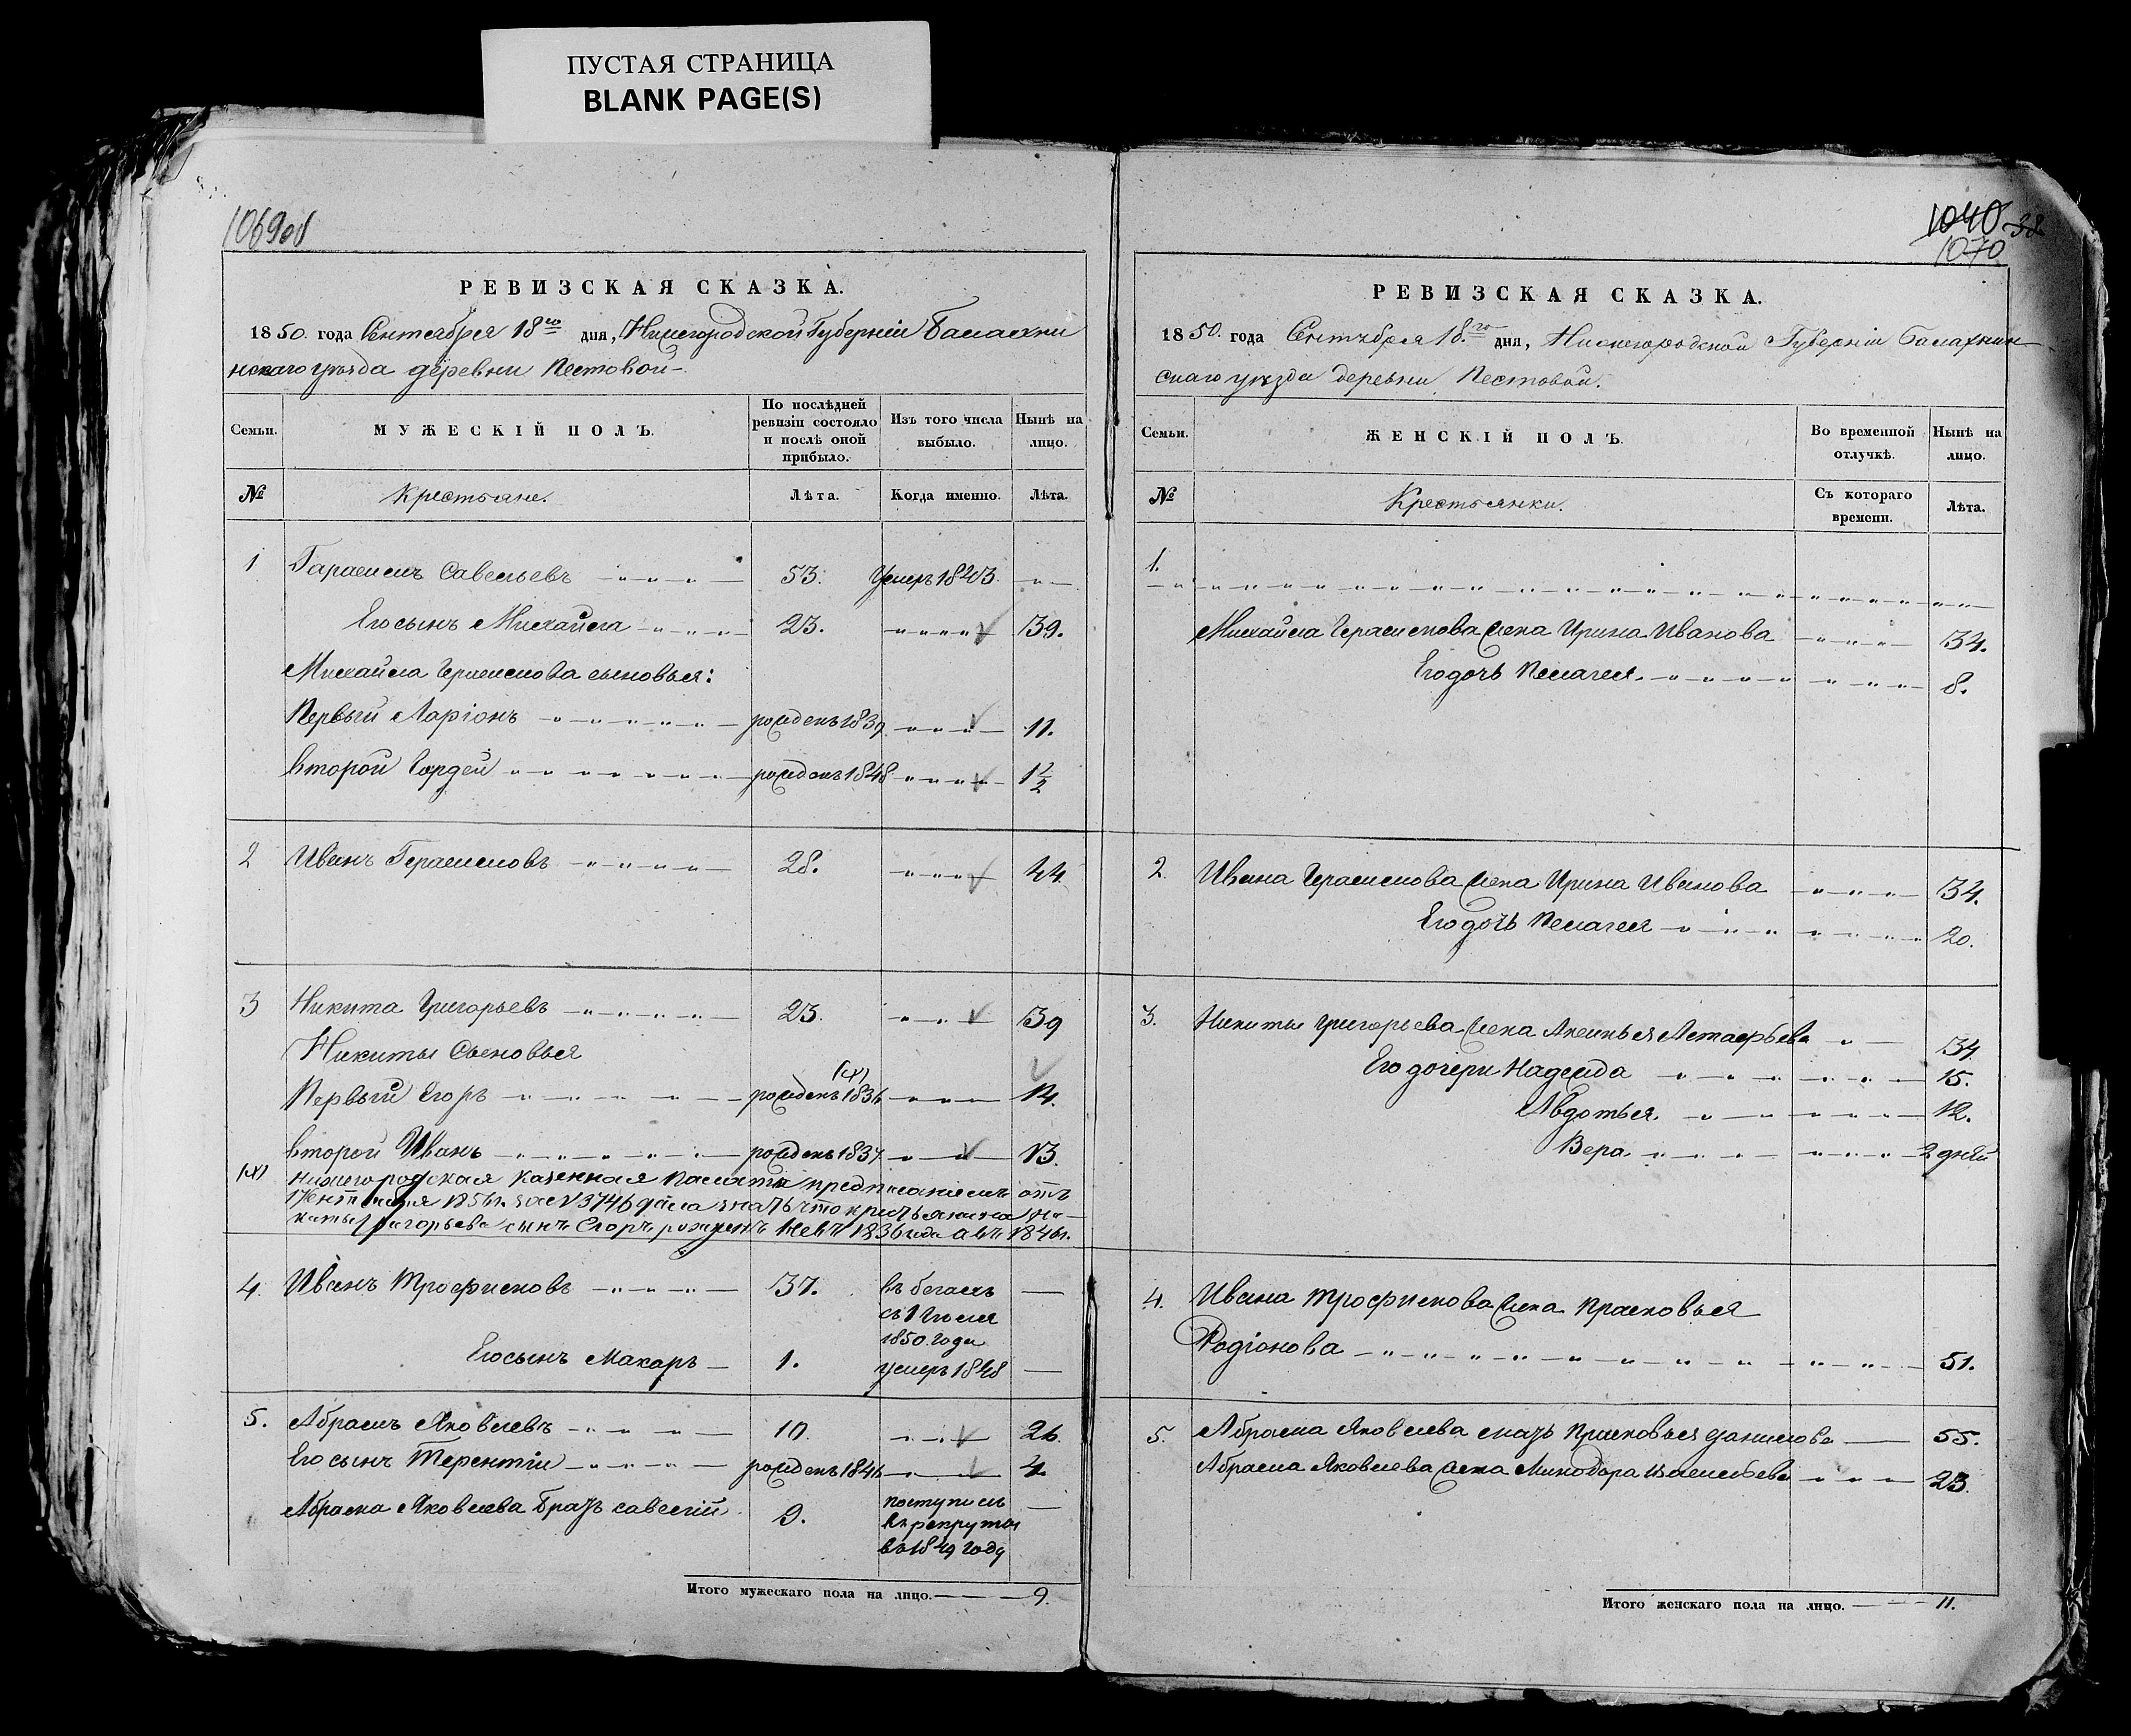 ПУСТАЯ СТРАНИЦА
BLANK PAGE(S)
1069об
РЕВИЗСКАЯ СКАЗКА.
1850. года Сентября 18го дня, Нижегородской Губерніи Балахни
нскаго уезда деревни Пестовой
Семьи. МУЖЕСКІЙ ПОЛЪ. По послѣдней ревизіи состояло и послѣ оной прибыло. Изъ того числа выбыло. Нынѣ на лицо.
№ Крестьяне. Лѣта. Когда именно. Лѣта.
1 Гарасимъ Савельевъ 53. Умеръ 1843.
Его сынъ Михайла 23. 39.
Михайла Герасимова сыновья:
Первый Ларіонъ рожденъ 1839 11.
второй Гордей рожденъ 1848 1½
2 Иванъ Герасимовъ 28. 44.
3 Никита Григорьевъ 23. 39
Никиты Сыновья
Первый Егоръ рожденъ 1836 14.
второй Иванъ рожденъ 1837. 13.
Нижегородская Казенная Палата предписаніемъ отъ
1856 за № 3746 дала знать что крестьянина Ни-
киты Григорьева сынъ Егоръ рожденъ не въ 1836 года а въ 1846 г.
4. Иванъ Трофимовъ 37. въ бегахъ
съ 1 Іюля
1850 года
Его сынъ Макаръ 1. умеръ 1848
5. Абрамъ Яковлевъ 10. 26.
Его сынъ Терентій рожденъ 1846 4.
Абрама Яковлева братъ Савелій 9. поступилъ
въ рекруты
въ 1849 году
Итого мужескаго пола на лицо. 9.
1040 38
1070
РЕВИЗСКАЯ СКАЗКА.
1850. года Сентября 18.го дня, Нижегородской Губерніи Балахнин
скаго уезда деревни Пестовой.
Семьи. ЖЕНСКІЙ ПОЛЪ. Во временной отлучкѣ. Нынѣ на лицо.
№ Крестьянки. Съ котораго времени. Лѣта.
1.
Михайла Герасимова жена Ирина Иванова 34.
Его дочь Пелагея 8.
2. Ивана Герасимова жена Ирина Иванова 34.
Его дочь Пелагея 20.
3. Никиты Григорьева жена Аксинья Астафьева 34
Его дочери Надежда 15.
Авдотья 12.
Вера 2 дней
4. Ивана Трофимова жена Прасковья
Родіонова 51.
5. Абрама Яковлева мать Прасковья Данилова 55.
Абрама Яковлева жена Минодора 23.
Итого женскаго пола на лицо. 11.